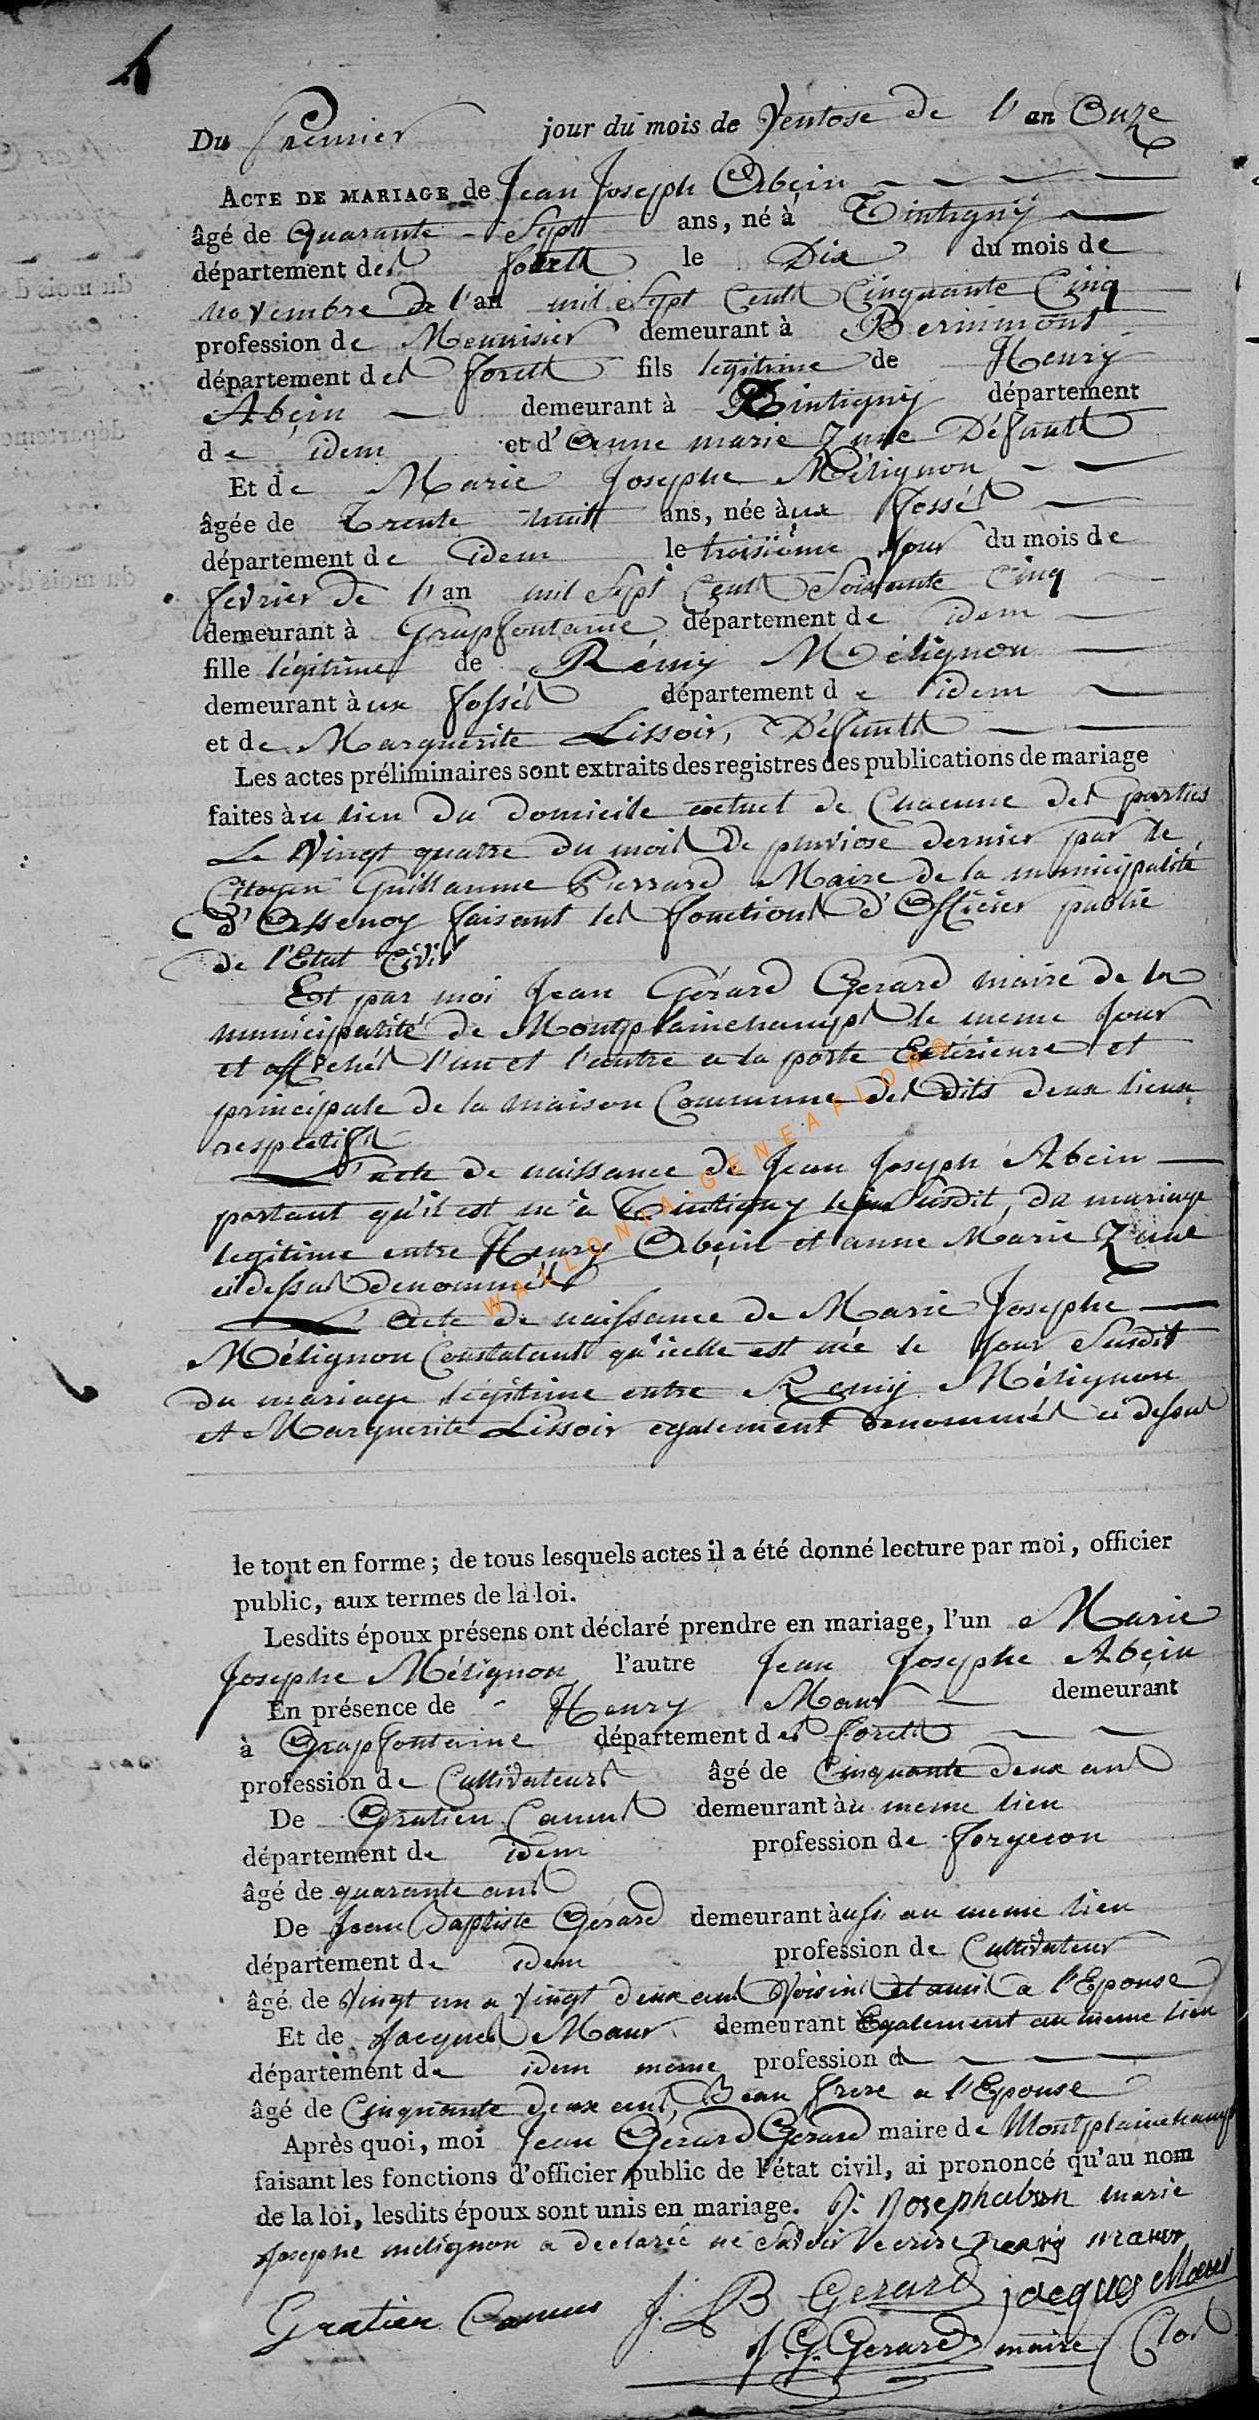 Du Premier jour du mois de Ventose de l'an Onze
ACTE DE MARIAGE de Jean Joseph Abçin
âgé de Quarante Sept ans, né à Tintigny
département des forets le Dix du mois de
novembre de l'an mil Sept Cents Cinquante Cinq
profession de Meunisier demeurant à Berimmont
département des forets fils legitime de Henry
Abçin demeurant à Tintigny département
de idem et d'Anne marie Zune Défunts
Et de Marie Josephe Mélignon
âgée de Trente huit ans, née àux fossés
département de idem le troisiême Jour du mois de
fevrier de l'an mil Sept Cents Soixante Cinq
demeurant à Grapfontaine département de idem
fille légitime de Rémy Mélignon
demeurant àux fossés département de idem
et de Marguerite Lissoir, Défunts
Les actes préliminaires sont extraits des registres des publications de mariage
faites àu lieu du domicile actuel de Chacune des parties
Le Vingt quatre du mois de pluviose dernier par le
Citoyen Guillaume Pierrard Maire de la municipalité
d'Assenoy faisant les fonctions d'Officier public
de l'Etat Civil
Et par moi Jean Gérard Gerard maire de la
municipalité de Montplainchamps le meme Jour
et affichés l'un et l'autre a la porte Extérieure et
principale de la maison Commune des dits deux lieux
respectifs
L'acte de naissance de Jean Joseph Abein
portant qu'il est né à Tintigny le jour Susdit, du mariage
legitime entre Henry Abçin et anne Marie Zune
ci dessus denommés
L'Acte de naissance de Marie Josephe
Mélignon Constatant qu'icelle est née le Jour Susdit
du mariage légitime entre Remy Mélignon
et Marguerite Lissoir egalement denommés ci dessus
le tout en forme ; de tous lesquels actes il a été donné lecture par moi, officier
public, aux termes de la loi.
Lesdits époux présens ont déclaré prendre en mariage, l'un Marie
Josephe Mélignon l'autre Jean Josephe Abçin
En présence de Henry Maur demeurant
à Grapfontaine département des forets
profession de Cultivateurs âgé de Cinquante deux ans
De Gratien Camus demeurant àu meme lieu
département de idem profession de forgeron
âgé de quarante ans
De Jean Baptiste Gérard demeurant àussi au meme lieu
département de idem profession de Cultivateur
âgé de Vingt un a Vingt deux ans Voisins et amis a l'Epouse
Et de Jacques Maur demeurant Egalement au meme lieu
département de idem meme profession d
âgé de Cinquante deux ans, Beau frere a l'Epouse
Après quoi, moi Jean Gérard Gerard maire de Montplainchamps
faisant les fonctions d'officier public de l'état civil, ai prononcé qu'au nom
de la loi, lesdits époux sont unis en mariage. J: Josephabsn marie
Josephe mélignon a declarée ne Savoir ecrire henry maur
Gratien Camus J: B Gerard jacques Maur
J. G. Gerard maire
WALLONIA-GENEAFLOR®